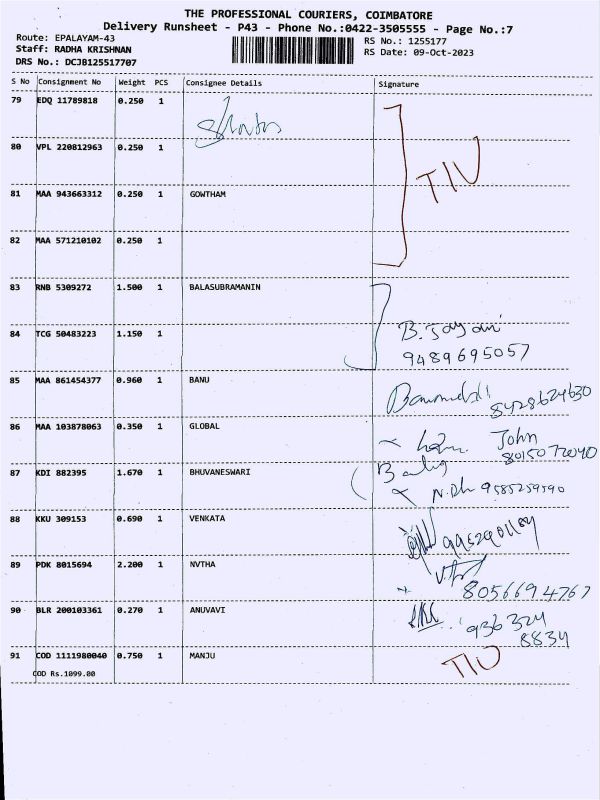 THE PROFESSIONAL COURIERS, COIMBATORE
Delivery Runsheet - P43 - Phone No.:0422-3505555 - Page No.:7
Route: EPALAYAM-43
Staff: RADHA KRISHNAN
DRS No.: DCJB125517707
RS No.: 1255177
RS Date: 09-Oct-2023
S No Consignment No Weight PCS Consignee Details Signature
79 EDQ 11789818 0.250 1
80 VPL 220812963 0.250 1
TIU
81 MAA 943663312 0.250 1 GOWTHAM
82 MAA 571210102 0.250 1
83 RNB 5309272 1.500 1 BALASUBRAMANIN
B. Jayani
84 TCG 50483223 1.150 1
9489695057
85 MAA 861454377 0.960 1 BANU
8428624630
86 MAA 103878063 0.350 1 GLOBAL
John
8015072040
87 KDI 882395 1.670 1 BHUVANESWARI
9585259590
88 KKU 309153 0.690 1 VENKATA
89 PDK 8015694 2.200 1 NVTHA
8056694767
90 BLR 200103361 0.270 1 ANUVAVI
936 324
8834
91 COD 1111980040 0.750 1 MANJU
TIU
COD Rs.1099.00